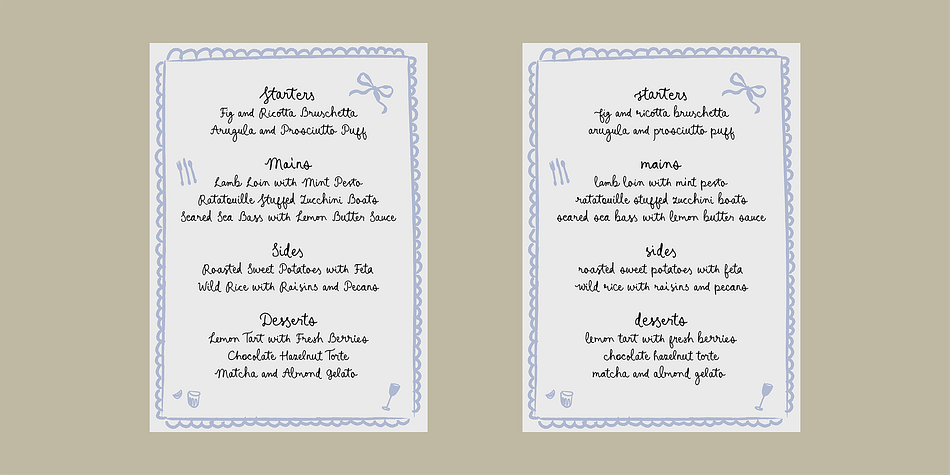 Starters
Fig and Ricotta Bruschetta
Arugula and Prosciutto Puff
Mains
Lamb Loin with Mint Pesto
Ratatouille Stuffed Zucchini Boats
Seared Sea Bass with Lemon Butter Sauce
Sides
Roasted Sweet Potatoes with Feta
Wild Rice with Raisins and Pecans
Desserts
Lemon Tart with Fresh Berries
Chocolate Hazelnut Torte
Matcha and Almond Gelato
starters
fig and ricotta bruschetta
arugula and prosciutto puff
mains
lamb loin with mint pesto
ratatouille stuffed zucchini boats
seared sea bass with lemon butter sauce
sides
roasted sweet potatoes with feta
wild rice with raisins and pecans
desserts
lemon tart with fresh berries
chocolate hazelnut torte
matcha and almond gelato